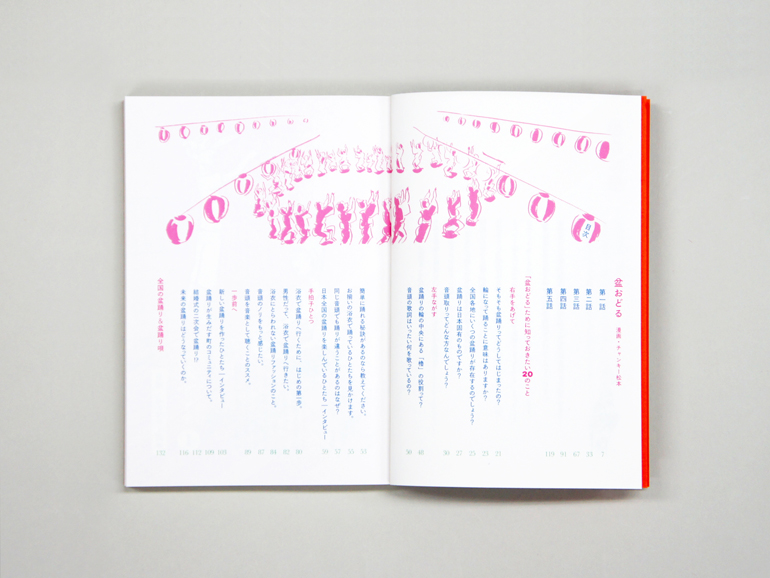 目次
盆おどる 漫画・チャンキー松本
第一話 7
第二話 33
第三話 67
第四話 91
第五話 119
「盆おどる」ために知っておきたい20のこと
右手をあげて
そもそも盆踊りってどうしてはじまったの? 21
輪になって踊ることに意味はありますか? 23
全国各地にいくつの盆踊りが存在するのでしょう? 25
音頭取りってどんな方なんでしょう? 27
盆踊りは日本固有のものですか? 30
左手ながす
盆踊りの輪の中央にある「櫓」の役割って? 48
音頭の歌詞はいったい何を歌っているの? 50
簡単に踊れる秘訣があるのなら教えてください。 53
お揃いの浴衣で踊っているひとたちを見かけます。 55
同じ音頭でも踊りが違うことがあるのはなぜ? 57
日本全国の盆踊りを楽しんでいるひとたち|インタビュー 59
手拍子ひとつ
浴衣で盆踊りへ行くために、はじめの第一歩。 80
男性だって、浴衣で盆踊りへ行きたい。 82
浴衣にとらわれない盆踊りファッションのこと。 84
音頭のノリをもっと感じたい。 87
音頭を音楽として聴くことのススメ。 89
一歩前へ
新しい盆踊りを作ったひとたち|インタビュー 103
盆踊りが生みだす町のコミュニティについて。 108
結婚式の二次会で盆踊り!? 112
未来の盆踊りはどうなっていくのか。 116
全国の盆踊り&盆踊り唄 132